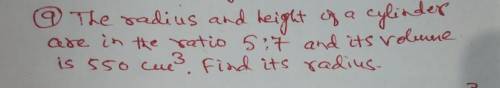 ⑨ The radius and height of a cylinder
are in the ratio 5:7 and its volume
is 550 cm³. Find its radius.